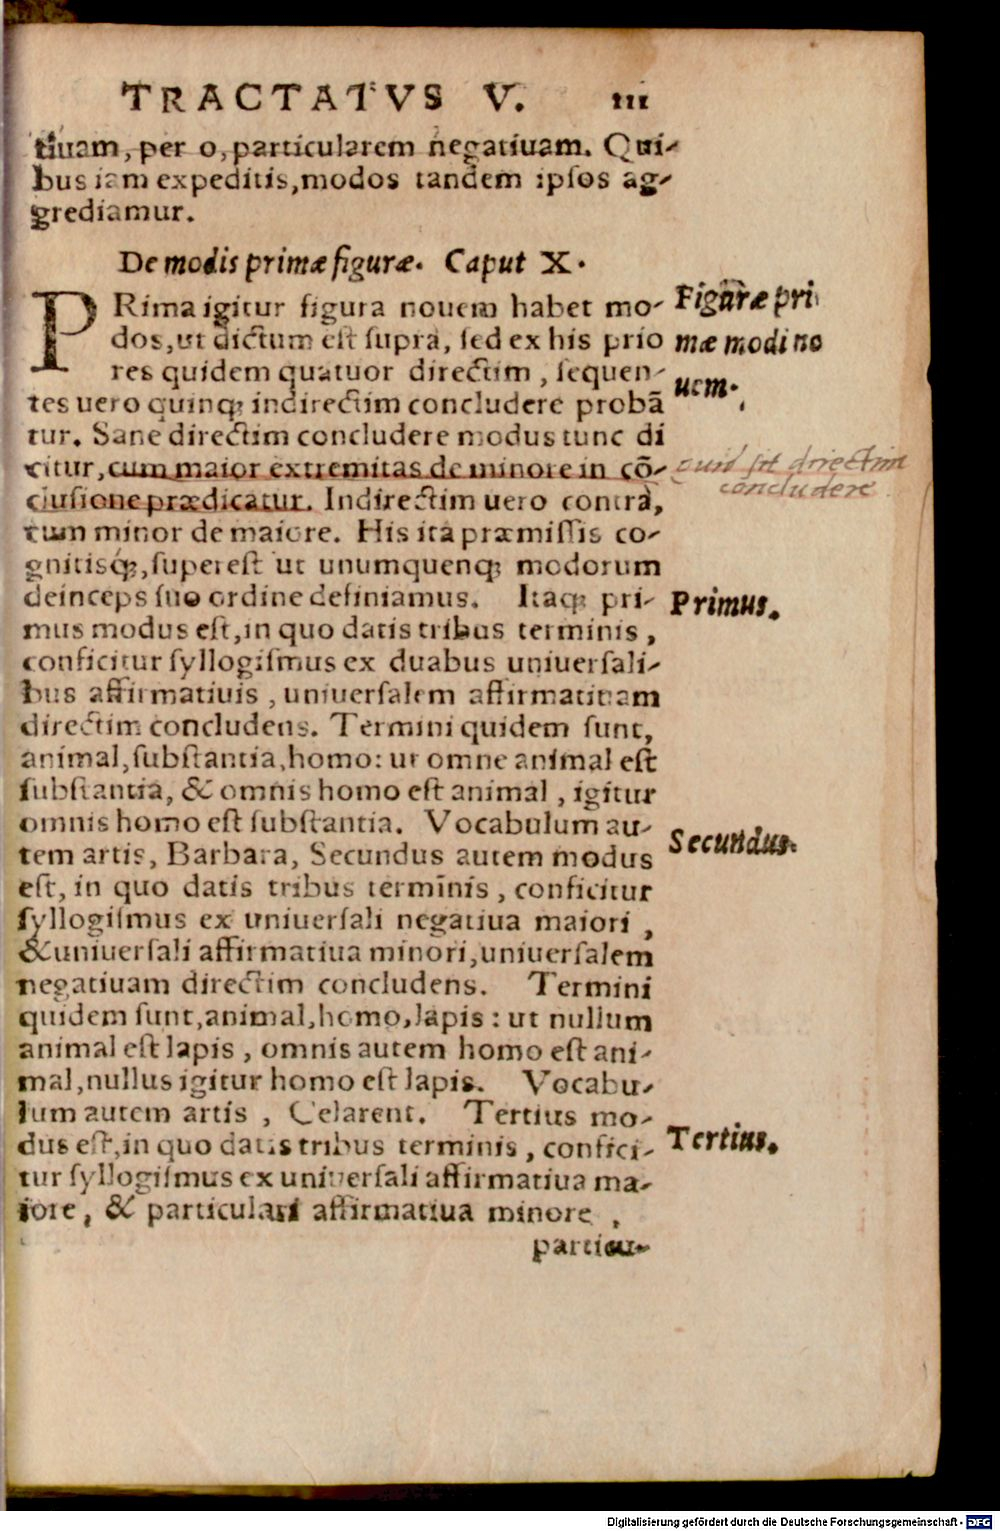 TRACTATVS V. 111
tiuam, per o, particularem negatiuam. Qui-
bus iam expeditis, modos tandem ipſos ag-
grediamur.
De modis primæ figuræ. Caput X.
PRima igitur figura nouem habet mo-
dos, ut dictum eſt ſupra, ſed ex his prio
res quidem quatuor directim, ſequen-
tes uero quinq; indirectim concludere probã
tur. Sane directim concludere modus tunc di
citur, cum maior extremitas de minore in cõ-
cluſione prædicatur. Indirectim uero contrà,
cum minor de maiore. His ita præmiſſis co-
gnitisq́;, ſupereſt ut unumquenq; modorum
deinceps ſuo ordine definiamus. Itaq; pri-
mus modus eſt, in quo datis tribus terminis,
conficitur ſyllogiſmus ex duabus uniuerſali-
bus affirmatiuis, uniuerſalem affirmatiuam
directim concludens. Termini quidem ſunt,
animal, ſubſtantia, homo: ut omne animal eſt
ſubſtantia, & omnis homo eſt animal, igitur
omnis homo eſt ſubſtantia. Vocabulum au-
tem artis, Barbara, Secundus autem modus
eſt, in quo datis tribus terminis, conficitur
ſyllogiſmus ex uniuerſali negatiua maiori,
& uniuerſali affirmatiua minori, uniuerſalem
negatiuam directim concludens. Termini
quidem ſunt, animal, homo, lapis: ut nullum
animal eſt lapis, omnis autem homo eſt ani-
mal, nullus igitur homo eſt lapis. Vocabu-
lum autem artis, Celarent. Tertius mo-
dus eſt, in quo datis tribus terminis, confici-
tur ſyllogiſmus ex uniuerſali affirmatiua ma-
iore, & particulari affirmatiua minore,
particu-
Figuræ pri
mæ modi no
uem.
quid ſit directim
concludere
Primus.
Secundus.
Tertius.
Digitalisierung gefördert durch die Deutsche Forschungsgemeinschaft - DFG